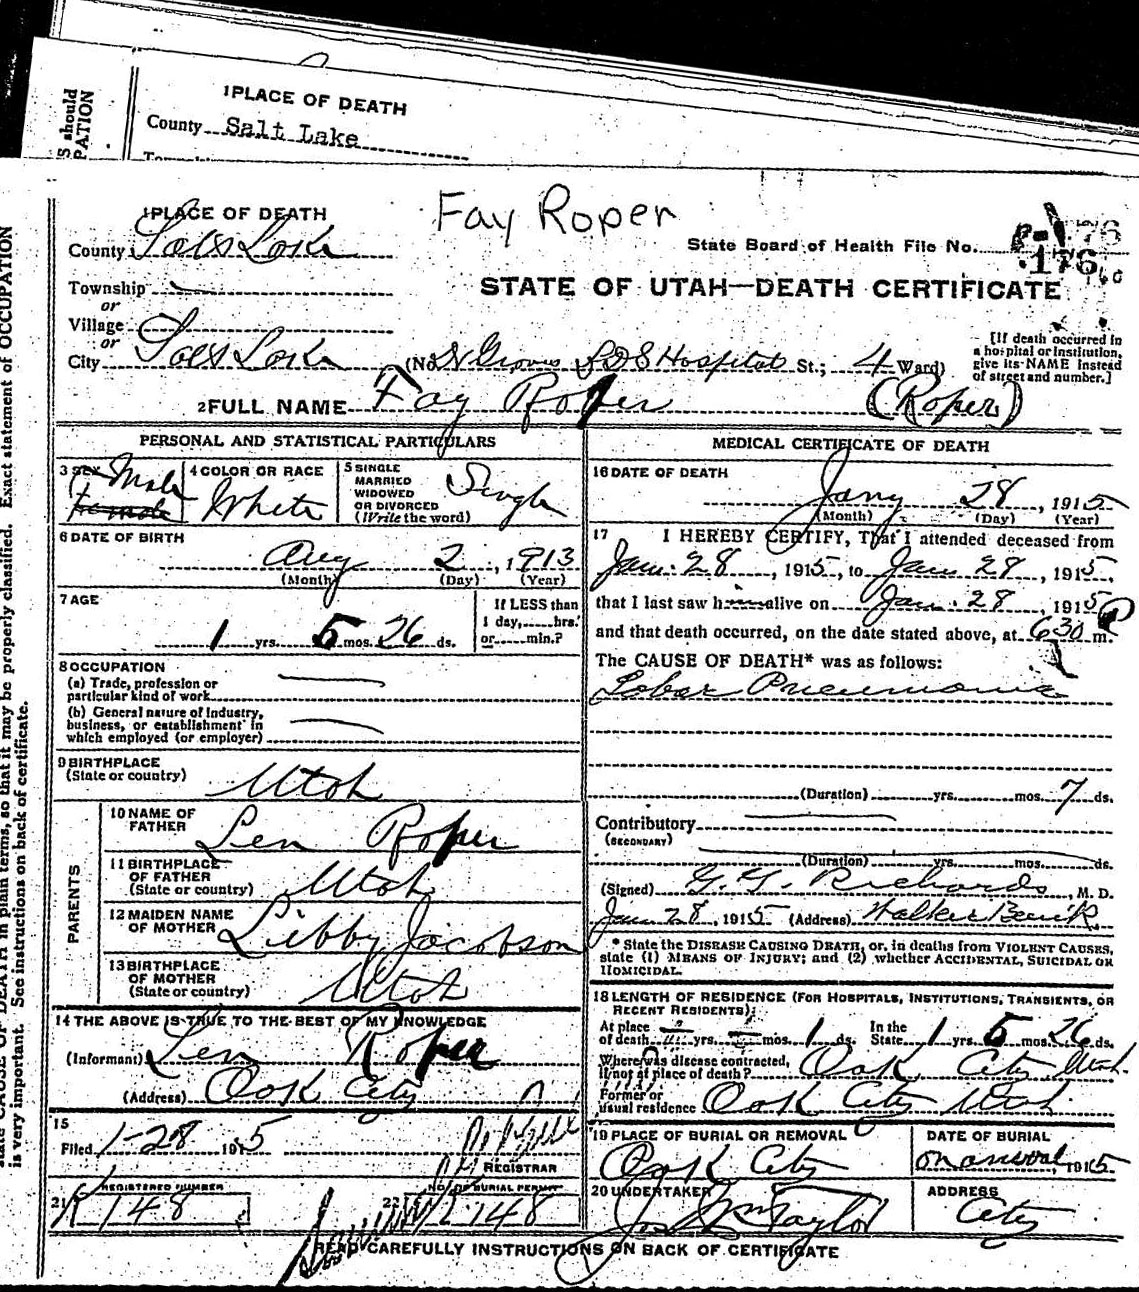 1 PLACE OF DEATH
County Salt Lake
S should
PATION
Fay Roper
1 PLACE OF DEATH
County Salt Lake
State Board of Health File No. 176
Township
or
STATE OF UTAH—DEATH CERTIFICATE
Village
or
City Salt Lake (No. LDS Hospital St.; 4 Ward)
[If death occurred in a hospital or institution, give its NAME instead of street and number.]
2 FULL NAME Fay Roper (Roper)
PERSONAL AND STATISTICAL PARTICULARS
3 SEX Male Female
4 COLOR OR RACE White
5 SINGLE MARRIED WIDOWED OR DIVORCED (Write the word) Single
6 DATE OF BIRTH
Aug 2, 1913
(Month) (Day) (Year)
7 AGE
1 yrs. 5 mos. 26 ds.
If LESS than 1 day, hrs. or min.?
8 OCCUPATION
(a) Trade, profession or particular kind of work
(b) General nature of industry, business, or establishment in which employed (or employer)
9 BIRTHPLACE
(State or country) Utah
PARENTS
10 NAME OF FATHER Len Roper
11 BIRTHPLACE OF FATHER (State or country) Utah
12 MAIDEN NAME OF MOTHER Libby Jacobson
13 BIRTHPLACE OF MOTHER (State or country) Utah
14 THE ABOVE IS TRUE TO THE BEST OF MY KNOWLEDGE
(Informant) Len Roper
(Address) Oak City
15
Filed 1-28 1915
REGISTRAR
21 REGISTERED NUMBER
K 148
22 NO. OF BURIAL PERMIT
148
MEDICAL CERTIFICATE OF DEATH
16 DATE OF DEATH
Jany 28, 1915
(Month) (Day) (Year)
17 I HEREBY CERTIFY, That I attended deceased from
Jan. 28, 1915, to Jan 28, 1915,
that I last saw h alive on Jan. 28, 1915
and that death occurred, on the date stated above, at 630 P m.
The CAUSE OF DEATH* was as follows:
Lobar Pneumonia
(Duration) yrs. mos. 7 ds.
Contributory
(SECONDARY)
(Duration) yrs. mos. ds.
(Signed) G. G. Richards, M. D.
Jan 28, 1915 (Address) Walker Bank
* State the DISEASE CAUSING DEATH, or, in deaths from VIOLENT CAUSES,
state (1) MEANS OF INJURY; and (2) whether ACCIDENTAL, SUICIDAL OR
HOMICIDAL.
18 LENGTH OF RESIDENCE (FOR HOSPITALS, INSTITUTIONS, TRANSIENTS, OR
RECENT RESIDENTS):
At place of death yrs. mos. 1 ds. In the State 1 yrs 5 mos. 26 ds.
Where was disease contracted, if not at place of death? Oak City Utah.
Former or usual residence Oak City Utah
19 PLACE OF BURIAL OR REMOVAL
Oak City
DATE OF BURIAL
on arrival, 1915
20 UNDERTAKER
Jos Wm Taylor
ADDRESS
City
READ CAREFULLY INSTRUCTIONS ON BACK OF CERTIFICATE
state CAUSE OF DEATH in plain terms, so that it may be properly classified. Exact statement of OCCUPATION
is very important. See instructions on back of certificate.